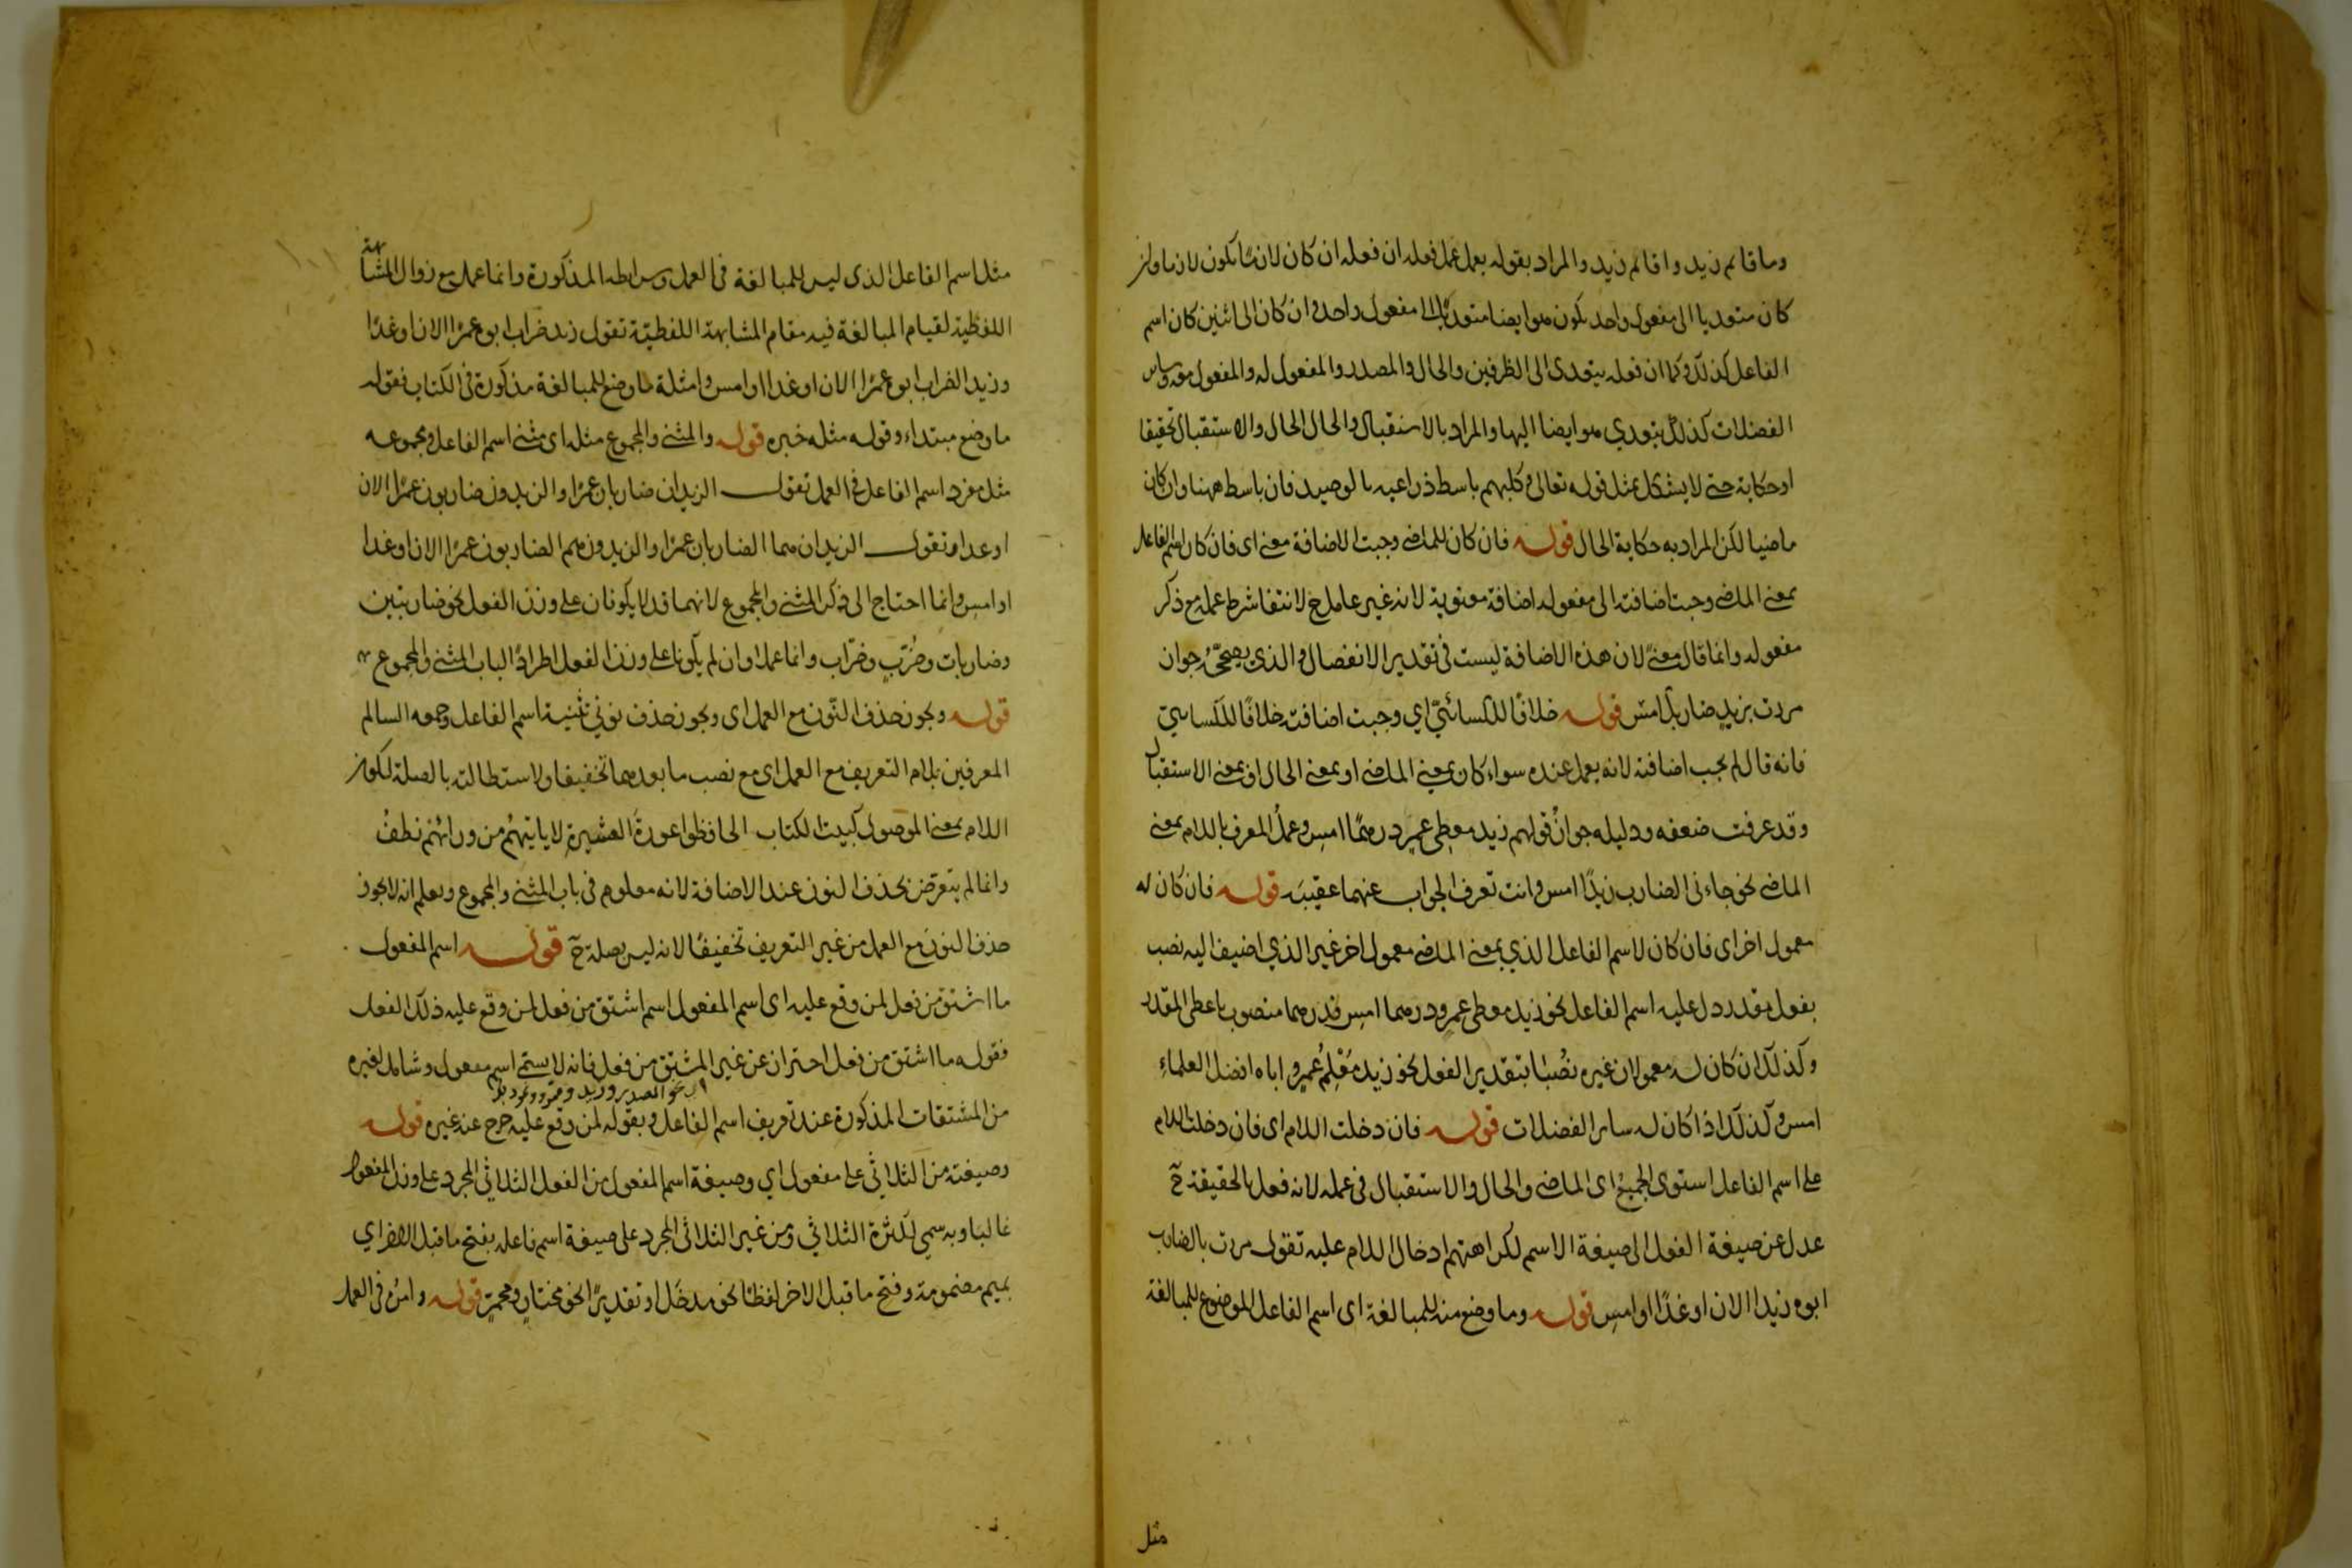 وما قائم زيد واقائم زيد والمراد بقوله يعمل عمل فعله ان فعله ان كان لازما يكون لازما وان
كان متعديا الى مفعول واحد يكون هو ايضا متعديا الى مفعول واحد وان كان الى اثنين كان اسم
الفاعل كذلك وكما ان فعله يتعدى الى الظرفين والحال والمصدر والمفعول له والمفعول معه وسائر
الفضلات كذلك يتعدي هو ايضا اليها والمراد بالاستقبال والحال الحال والاستقبال تحقيقا
اوحكاية حتى لا يشكل بمثل قوله تعالى وكلبهم باسط ذراعيه بالوصيد فان باسط ههنا وان كان
ماضيا لكن المراد به حكاية الحال قوله فان كان للماضى وجبت الاضافة معنى اى فان كان اسم الفاعل
بمعنى الماضى وجبت اضافته الى مفعوله اضافة معنوية لانه غير عامل ح لانتفا شرط عمله مع ذكر
مفعوله وانما قال معنىً لان هذه الاضافة ليست فى تقدير الانفصال والذى يصححُّه جواز
مررت بزيدٍ ضاربك امسِ قوله خلافًا للكسائىّ اي وجبت اضافته خلافًا للكسايىّ
فانه قال لم يجب اضافته لانه يعمل عنده سواء كان بمعنى الماضى او بمعنى الحال او بمعنى الاستقبال
وقد عرفت ضعفه ودليله جوازُ قولهم زيد معطى عمرٍو درهمًا امسِ وعملُ المعرف باللام بمعنى
الماضى نحو جاءنى الضارب زيدًا امس وانت تعرف الجواب عنهما عقيبَه قوله فان كان له
معمول اخر اى فان كان لاسم الفاعل الذي بمعنى الماضى معمول اخر غير الذي اضيف اليه نصب
بفعل مقدر دل عليه اسم الفاعل نحو زيد معطى عمرٍو درهما امسِ فدرهما منصوب باعطى المقدر
وكذلك ان كان له معمولان غيره نُصبا بتقدير الفعل نحو زيد مُعْلِمُ عمرٍو اباه افضل العلماءِ
امس وكذلك اذا كان له ساير الفضلات قوله فان دخلت اللام اى فان دخلت اللام
على اسم الفاعل استوى الجميعُ اى الماضى والحال والاستقبال فى عمله لانه فعل بالحقيقة ح
عدل عن صيغة الفعل الى صيغة الاسم لكراهتهم ادخال اللام عليه تقول مررت بالضارب
ابوه زيدا الان او غدًا او امسِ قوله وما وضع منه للمبالغة اى اسم الفاعل الموضوع للمبالغة
مثل
مثل اسم الفاعل الذى ليس للمبالغة فى العمل وشرايطه المذكورة وانما عمل مع زوال المشابهة
اللفظية لقيام المبالغة فيه مقام المشابهة اللفظيّة تقول زيد ضراب ابوه عمرًا الان او غدًا
وزيد الضراب ابوه عمرًا الان او غدا او امس وامثلة ما وضع للمبالغة مذكورة فى الكتاب فقوله
ما وضع مبتداء وقوله مثله خبره قوله والمثنى والمجموع مثله اى مثنى اسم الفاعل ومجموعه
مثل مفرد اسم الفاعل فى العمل تقول الزيدان ضاربان عمرًا والزيدون ضاربون عمرًا الان
او غدا وتقول الزيدان هما الضاربان عمرًا والزيدون هم الضاربون عمرًا الان او غدا
او امسِ وانما احتاج الى ذكر المثنى والمجموع لانهما قد لا يكونان على وزن الفعل نحو ضاربتين
وضاربات وضُرَّبٍ وضرّاب وانما عملا وان لم يكونا على وزن الفعل اطرادًا لباب المثنى والمجموع
قوله ويجوز حذف النّون مع العمل اى ويجوز حذف نونى تثنية اسم الفاعل وجمعه السالم
المعرفين بلام التعريف مع العمل اى مع نصب ما بعدهما تخفيفا ولاستطالته بالصلة لكون
اللام بمعنى الموصول كبيت الكتاب الحافظوا عورةَ العشيرةِ لا ياتيهُم من ورائهُم نطفُ
وانما لم يتعرض لحذف النون عند الاضافة لانه معلوم فى باب المثنى والمجموع ويعلم انه لا يجوز
حذف النون مع العمل من غير التعريف تخفيفًا لانه ليس بصلة ح قوله اسم المفعول
ما اشتق من فعل لمن وقع عليه اى اسم المفعول اسم اشتق من فعل لمن وقع عليه ذلك الفعل
فقوله ما اشتق من فعل احتراز عن غير المشتق من فعل فانه لا يسمّى اسم مفعول وشامل لغيره
نحو المصدر وزيد وعمرو
من المشتقات المذكورة عند تعريف اسم الفاعل وبقوله لمن وقع عليه خرج عنه غيره قوله
وصيغته من الثلاثى على مفعول اي وصيغة اسم المفعول من الفعل الثلاثى المجرد على وزن المفعول
غالبا وبه سمى لكثرة الثلاثى ومن غير الثلاثى المجرد على صيغة اسم فاعله بفتح ما قبل الاخر اي
بميم مضمومة وفتح ما قبل الاخر لفظًا نحو مدخَل او تقديرًا نحو مختارٍ ومحمرٍّ قوله وامره فى العمل